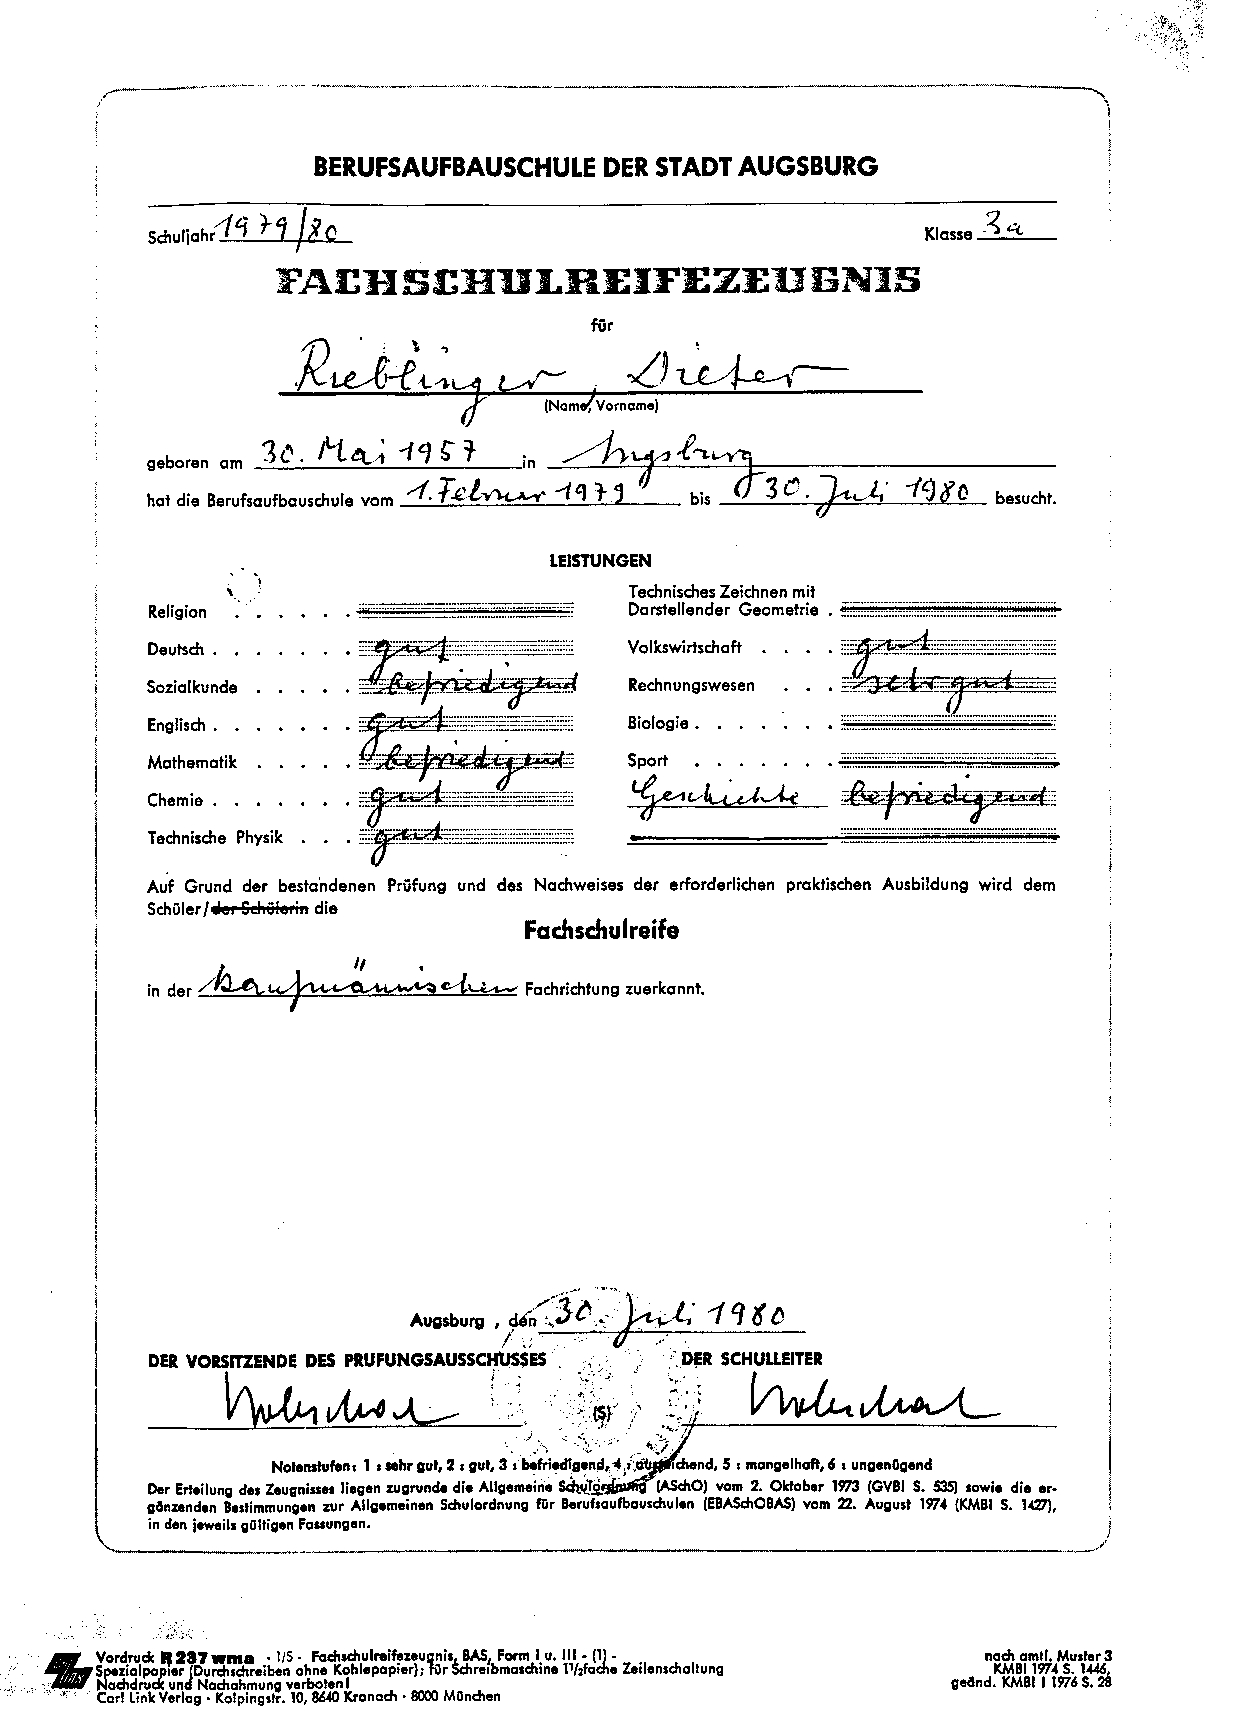 BERUFSAUFBAUSCHULE DER STADT AUGSBURG
Schuljahr 1979/80 Klasse 3a
FACHSCHULREIFEZEUGNIS
für
Rieblinger, Dieter
(Name, Vorname)
geboren am 30. Mai 1957 in Augsburg
hat die Berufsaufbauschule vom 1. Februar 1979 bis 30. Juli 1980 besucht.
LEISTUNGEN
Religion . . . . . .
Deutsch . . . . . . . gut
Sozialkunde . . . . . befriedigend
Englisch . . . . . . . gut
Mathematik . . . . . befriedigend
Chemie . . . . . . . gut
Technische Physik . . . gut
Technisches Zeichnen mit
Darstellender Geometrie .
Volkswirtschaft . . . . gut
Rechnungswesen . . . sehr gut
Biologie . . . . . . .
Sport . . . . . . .
Geschichte befriedigend
Auf Grund der bestandenen Prüfung und des Nachweises der erforderlichen praktischen Ausbildung wird dem
Schüler/der Schülerin die
Fachschulreife
in der kaufmännischen Fachrichtung zuerkannt.
Augsburg , den 30. Juli 1980
DER VORSITZENDE DES PRÜFUNGSAUSSCHUSSES DER SCHULLEITER
(S)
Notenstufen: 1 : sehr gut, 2 : gut, 3 : befriedigend, 4 : ausreichend, 5 : mangelhaft, 6 : ungenügend
Der Erteilung des Zeugnisses liegen zugrunde die Allgemeine Schulordnung (ASchO) vom 2. Oktober 1973 (GVBl S. 535) sowie die er-
gänzenden Bestimmungen zur Allgemeinen Schulordnung für Berufsaufbauschulen (EBASchOBAS) vom 22. August 1974 (KMBl S. 1427),
in den jeweils gültigen Fassungen.
Vordruck R 237 wma - 1/5 - Fachschulreifezeugnis, BAS, Form I u. III - (1) -
Spezialpapier (Durchschreiben ohne Kohlepapier); für Schreibmaschine 1½fache Zeilenschaltung
Nachdruck und Nachahmung verboten!
Carl Link Verlag · Kolpingstr. 10, 8640 Kronach · 8000 München
nach amtl. Muster 3
KMBl 1974 S. 1446,
geänd. KMBl I 1976 S. 28